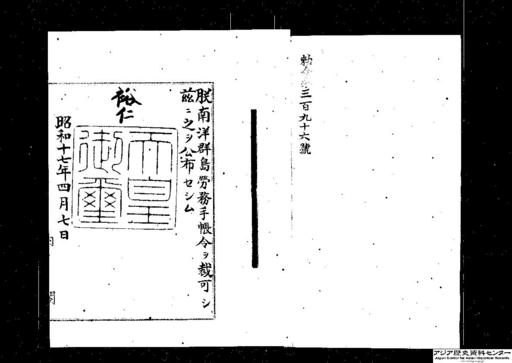 勅令第三百九十六號
朕南洋群島勞務手帳令ヲ裁可シ
茲ニ之ヲ公布セシム
裕仁
天皇御璽
昭和十七年四月七日
内閣
アジア歴史資料センター
Japan Center for Asian Historical Records